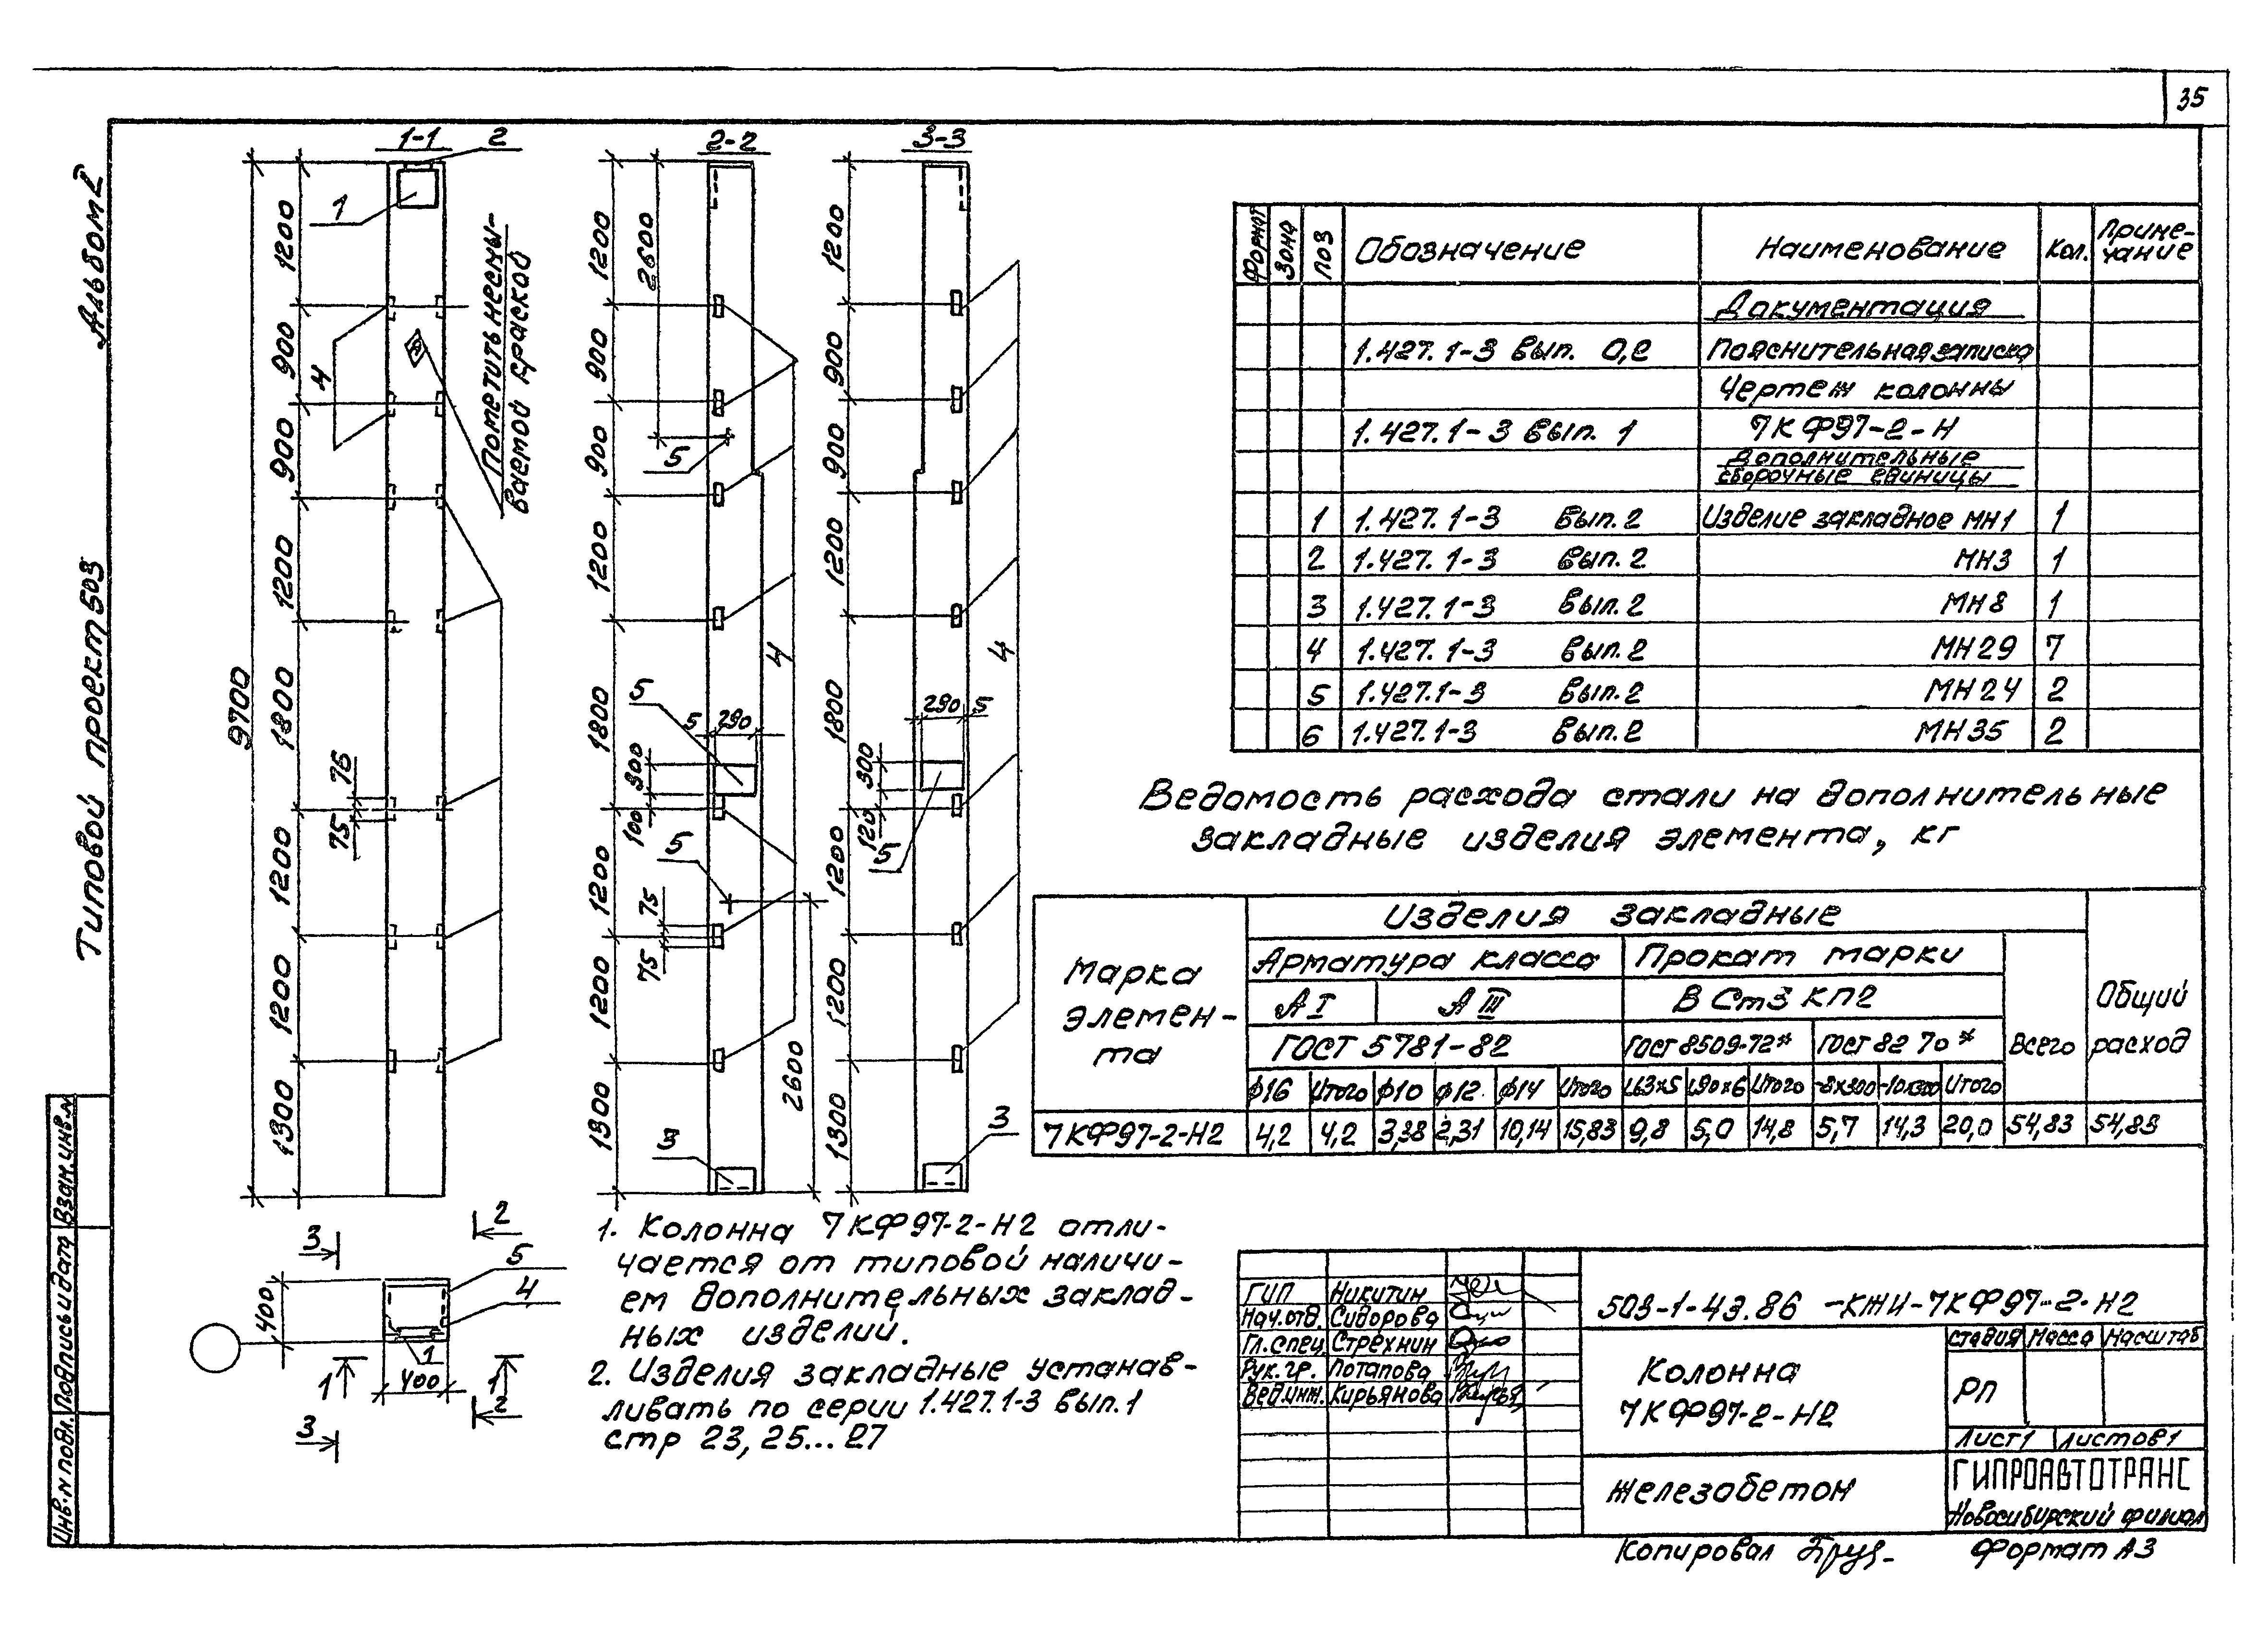 35
Альбом 2
Типовой проект 503
1-1
2
1
4
9700
1200
900
900
1200
1800
1200
1200
1300
75
75
Пометить несмы-
ваемой краской
2-2
1200
2600
900
900
1200
1800
1200
1200
1300
5
4
5
5
290
300
100
5
75
75
2600
3
3-3
1200
900
900
1200
1800
1200
1200
1300
4
290
5
300
120
5
3
Формат Зона Поз Обозначение Наименование Кол. Приме-
чание
Документация
1.427.1-3 вып. 0,2 Пояснительная записка
Чертеж колонны
1.427.1-3 вып. 1 7КФ97-2-Н
Дополнительные
сборочные единицы
1 1.427.1-3 вып.2 Изделие закладное МН1 1
2 1.427.1-3 вып.2 МН3 1
3 1.427.1-3 вып.2 МН8 1
4 1.427.1-3 вып.2 МН29 7
5 1.427.1-3 вып.2 МН24 2
6 1.427.1-3 вып.2 МН35 2
Ведомость расхода стали на дополнительные
закладные изделия элемента, кг
Марка
элемен-
та
Изделия закладные
Арматура класса Прокат марки
А I А III В Ст3 КП2
ГОСТ 5781-82 ГОСТ 8509-72* ГОСТ 82 70* Всего
Общий
расход
ф16 Итого ф10 ф12 ф14 Итого L63х5 L90х6 Итого -8х300 -10х300 Итого
7КФ97-2-Н2 4,2 4,2 3,38 2,31 10,14 15,83 9,8 5,0 14,8 5,7 14,3 20,0 54,83 54,83
3
2
400
5
4
1
1
400
1
2
3
1. Колонна 7КФ97-2-Н2 отли-
чается от типовой наличи-
ем дополнительных заклад-
ных изделий.
2. Изделия закладные устанав-
ливать по серии 1.427.1-3 вып.1
стр 23, 25...27
ГИП Никитин
Нач.отд. Сидорова
Гл.спец. Стрехнин
Рук.гр. Потапова
Вед.инж. Кирьянова
503-1-43.86 -КЖИ-7КФ97-2-Н2
Колонна
7КФ97-2-Н2
стадия Масса Масштаб
РП
Лист1 Листов1
Железобетон
ГИПРОАВТОТРАНС
Новосибирский филиал
Копировал
Формат А3
Инв.N подл. Подпись и дата Взам.инв.N